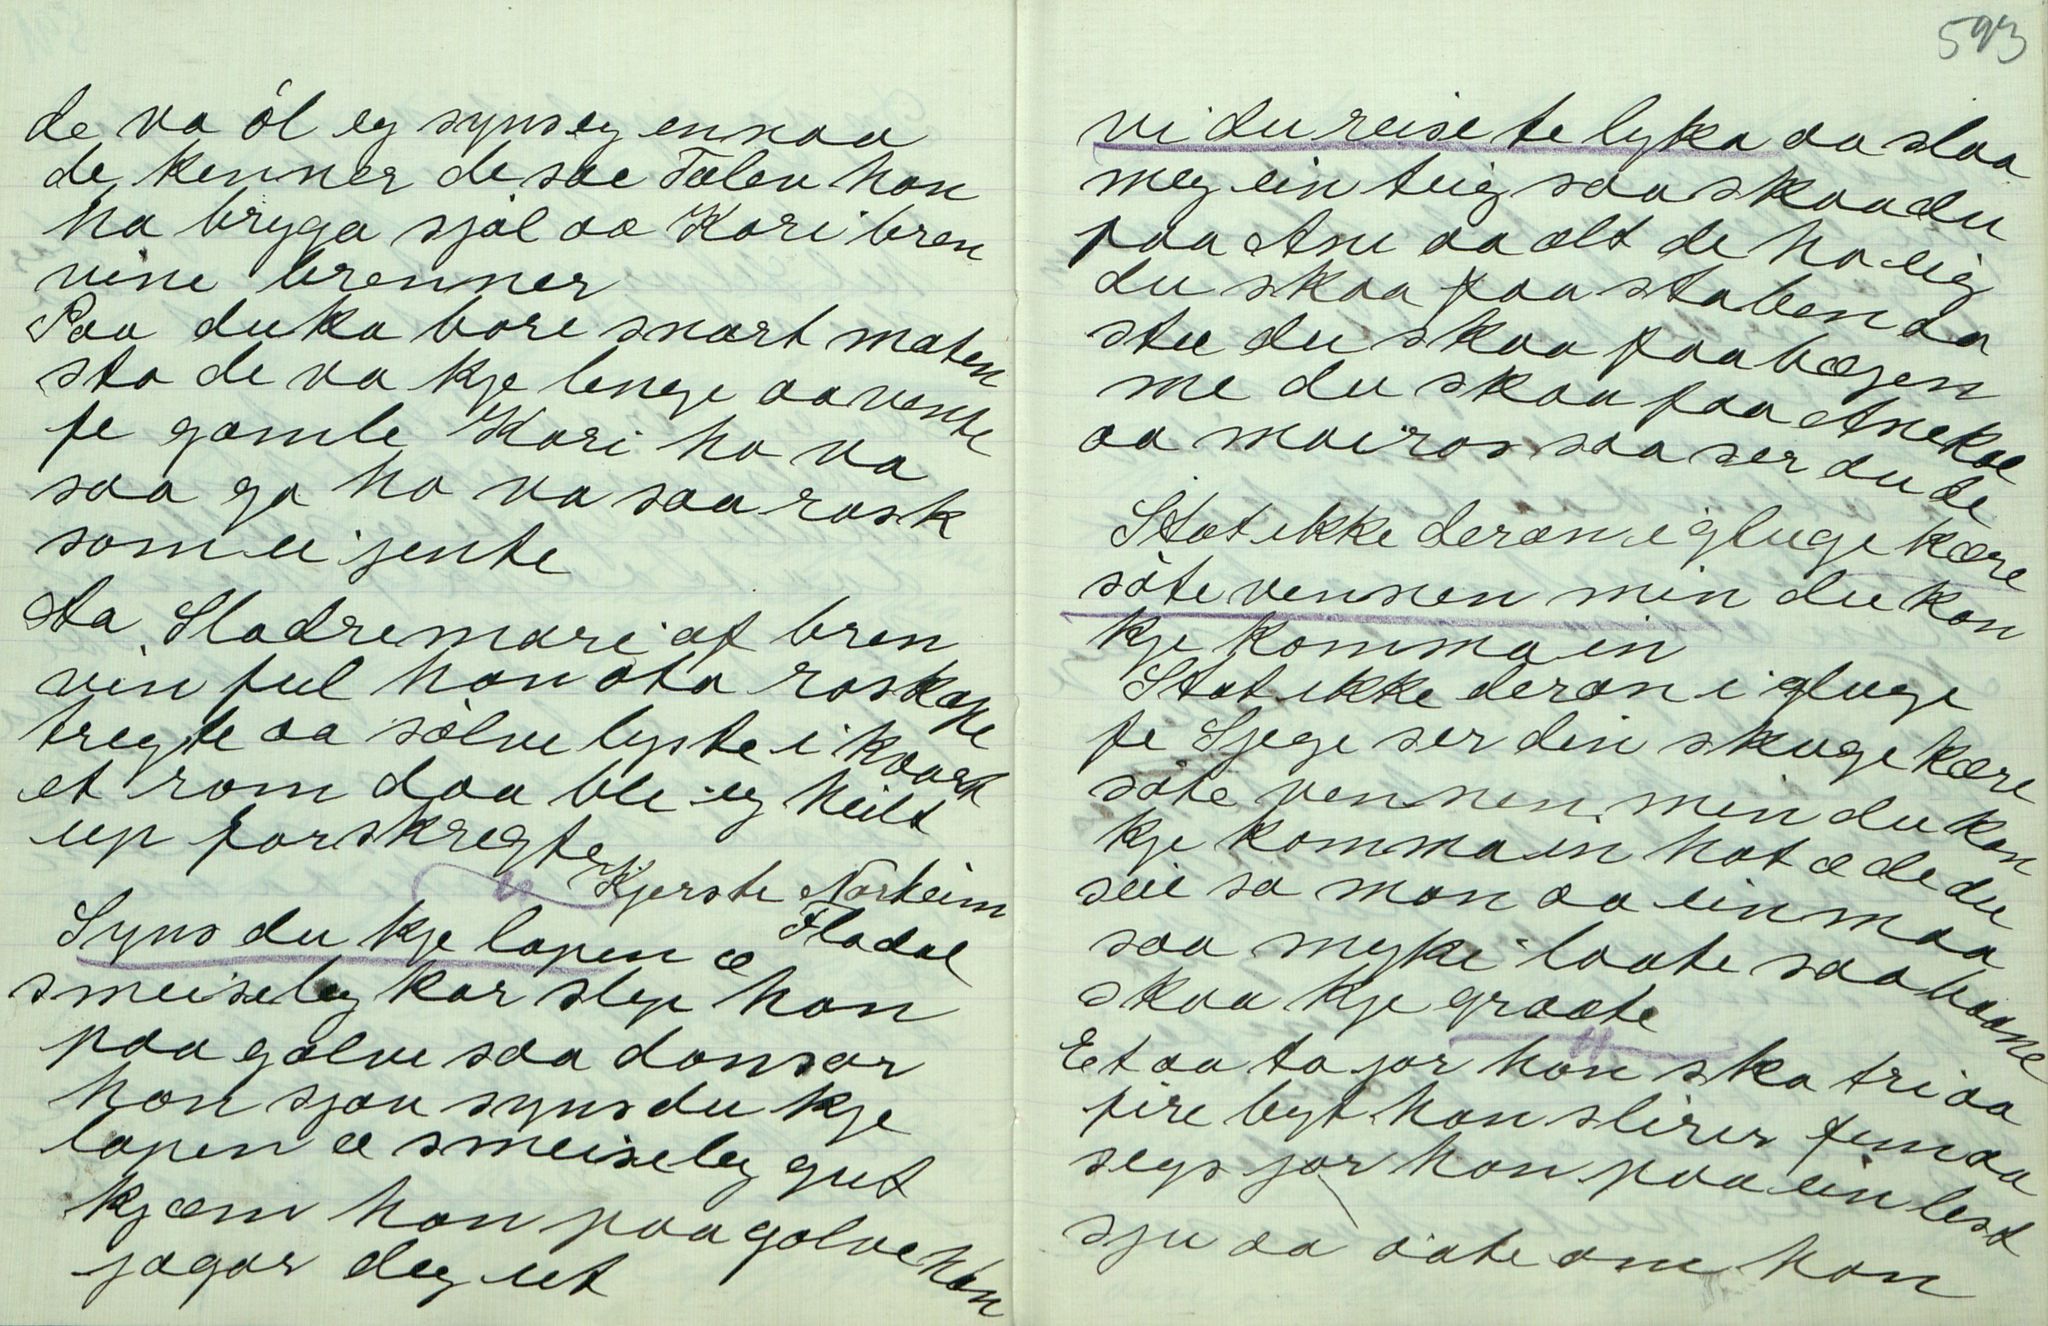 de va öl eg syns eg ennaa
de kenner de sae Tolen han
ha bryga sjøl aa Kari bren
vine brenner
Saa du ka bare snart maten
sta de va kje lenge aa vente
fe gamle Kari ho va
saa ga ho va saa rask
som ei jente
Aa Sladremari af bren
vin ful han ota raskape
tregte aa sölve lyste i kvart
et rom daa ble eg heilt
up forskregte
Kjerste Norheim
Fladal
Syns du kje lapen æ
smeiseleg kar slep han
paa golve saa dansar
han sjau syns du kje
lapen æ smeiseleg gut
kjæm han paa golve han
jagar deg ut
593
vi du reise te lyka aa slaa
meg ein teig saa skaa du
faa Ane aa alt de ho eig
du skaa faa staben aa
stu du skaa faa bægen
me du skaa faa Anekol
aa mairos saa ser du de
Stat ikke deran i gluge kære
söte vennen min du kan
kje komma in
Stat ikke deran i gluge
fe Sjege ser din skuge kære
söte vennen min du kan
kje komma in hot æ de du
seie sa man aa ein maa
saa myke laate saa baane
skaa kje graate
Et aa to jor han ska tri aa
fire byt han slirer fem aa
segs jor han paa ein lest
sju aa aate om han